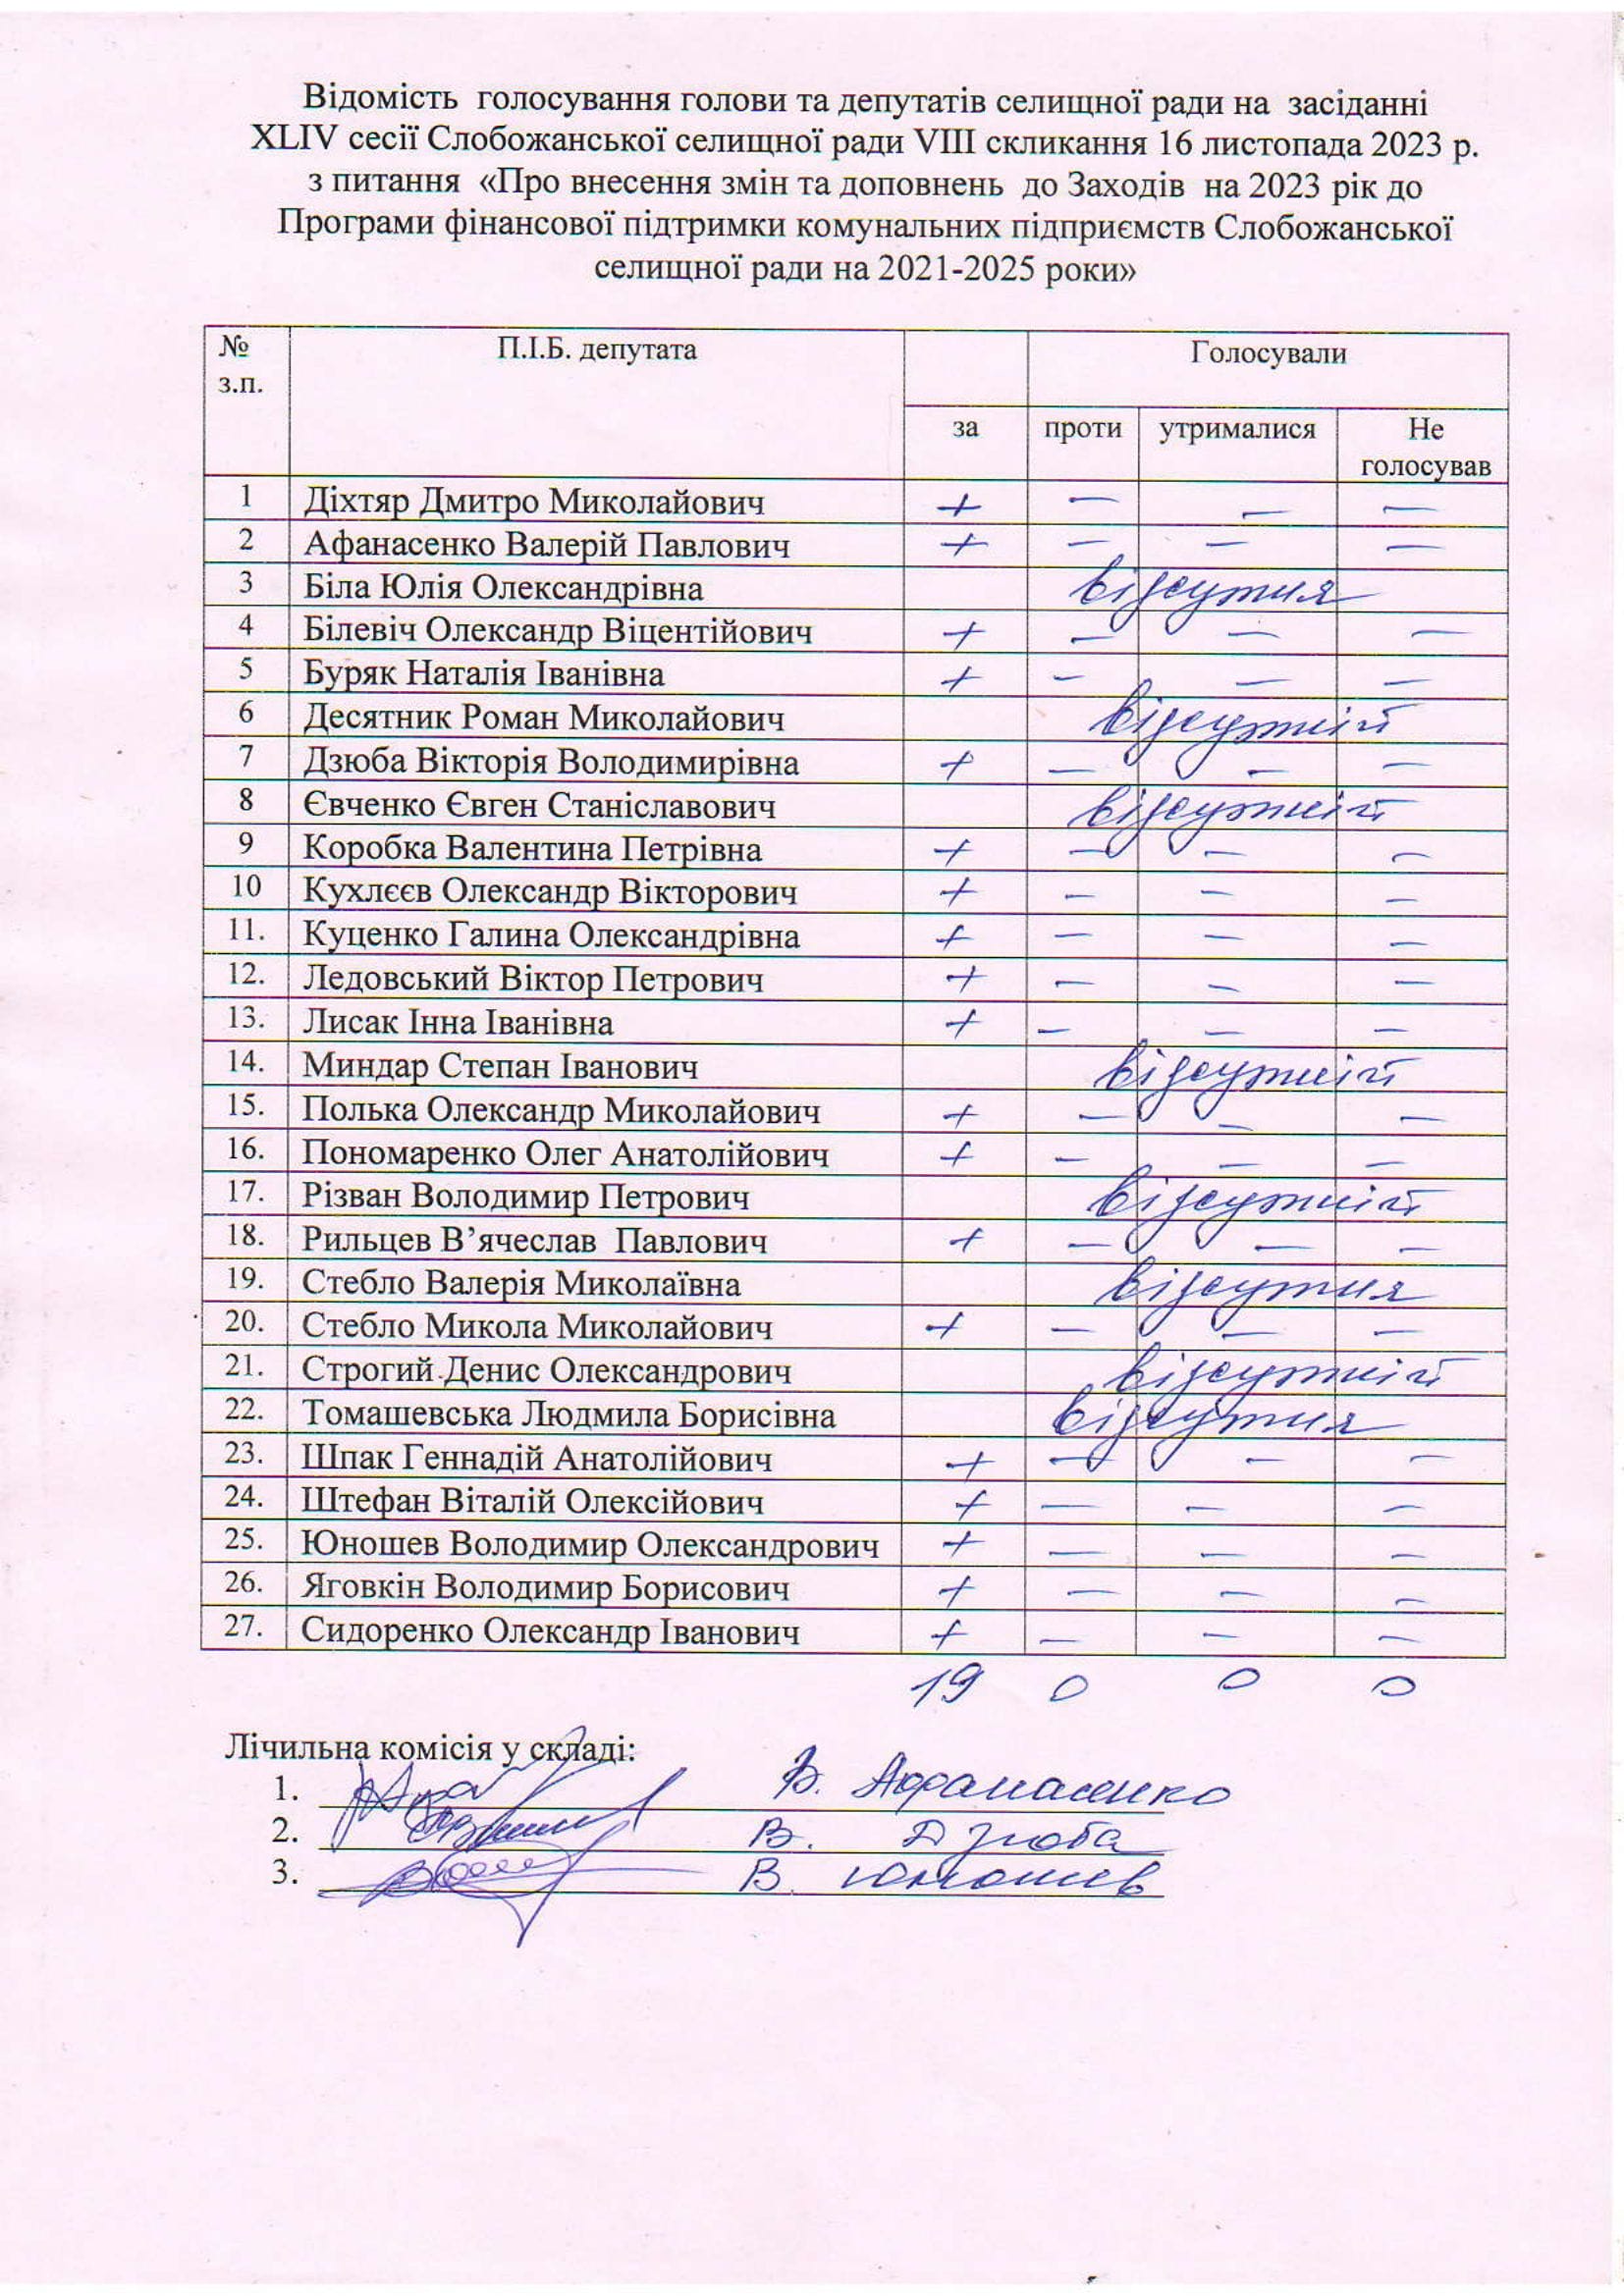 Відомість голосування голови та депутатів селищної ради на засіданні
XLIV сесії Слобожанської селищної ради VIII скликання 16 листопада 2023 р.
з питання «Про внесення змін та доповнень до Заходів на 2023 рік до
Програми фінансової підтримки комунальних підприємств Слобожанської
селищної ради на 2021-2025 роки»
№ з.п. П.І.Б. депутата Голосували
за проти утрималися Не голосував
1 Діхтяр Дмитро Миколайович + — — —
2 Афанасенко Валерій Павлович + — — —
3 Біла Юлія Олександрівна відсутня
4 Білевіч Олександр Віцентійович + — — —
5 Буряк Наталія Іванівна + — — —
6 Десятник Роман Миколайович відсутній
7 Дзюба Вікторія Володимирівна + — — —
8 Євченко Євген Станіславович відсутній
9 Коробка Валентина Петрівна + — — —
10 Кухлєєв Олександр Вікторович + — — —
11. Куценко Галина Олександрівна + — — —
12. Ледовський Віктор Петрович + — — —
13. Лисак Інна Іванівна + — — —
14. Миндар Степан Іванович відсутній
15. Полька Олександр Миколайович + — — —
16. Пономаренко Олег Анатолійович + — — —
17. Різван Володимир Петрович відсутній
18. Рильцев В’ячеслав Павлович + — — —
19. Стебло Валерія Миколаївна відсутня
20. Стебло Микола Миколайович + — — —
21. Строгий Денис Олександрович відсутній
22. Томашевська Людмила Борисівна відсутня
23. Шпак Геннадій Анатолійович + — — —
24. Штефан Віталій Олексійович + — — —
25. Юношев Володимир Олександрович + — — —
26. Яговкін Володимир Борисович + — — —
27. Сидоренко Олександр Іванович + — — —
19 0 0 0
Лічильна комісія у складі:
1. В. Афанасенко
2. В. Дзюба
3. В. Юношев